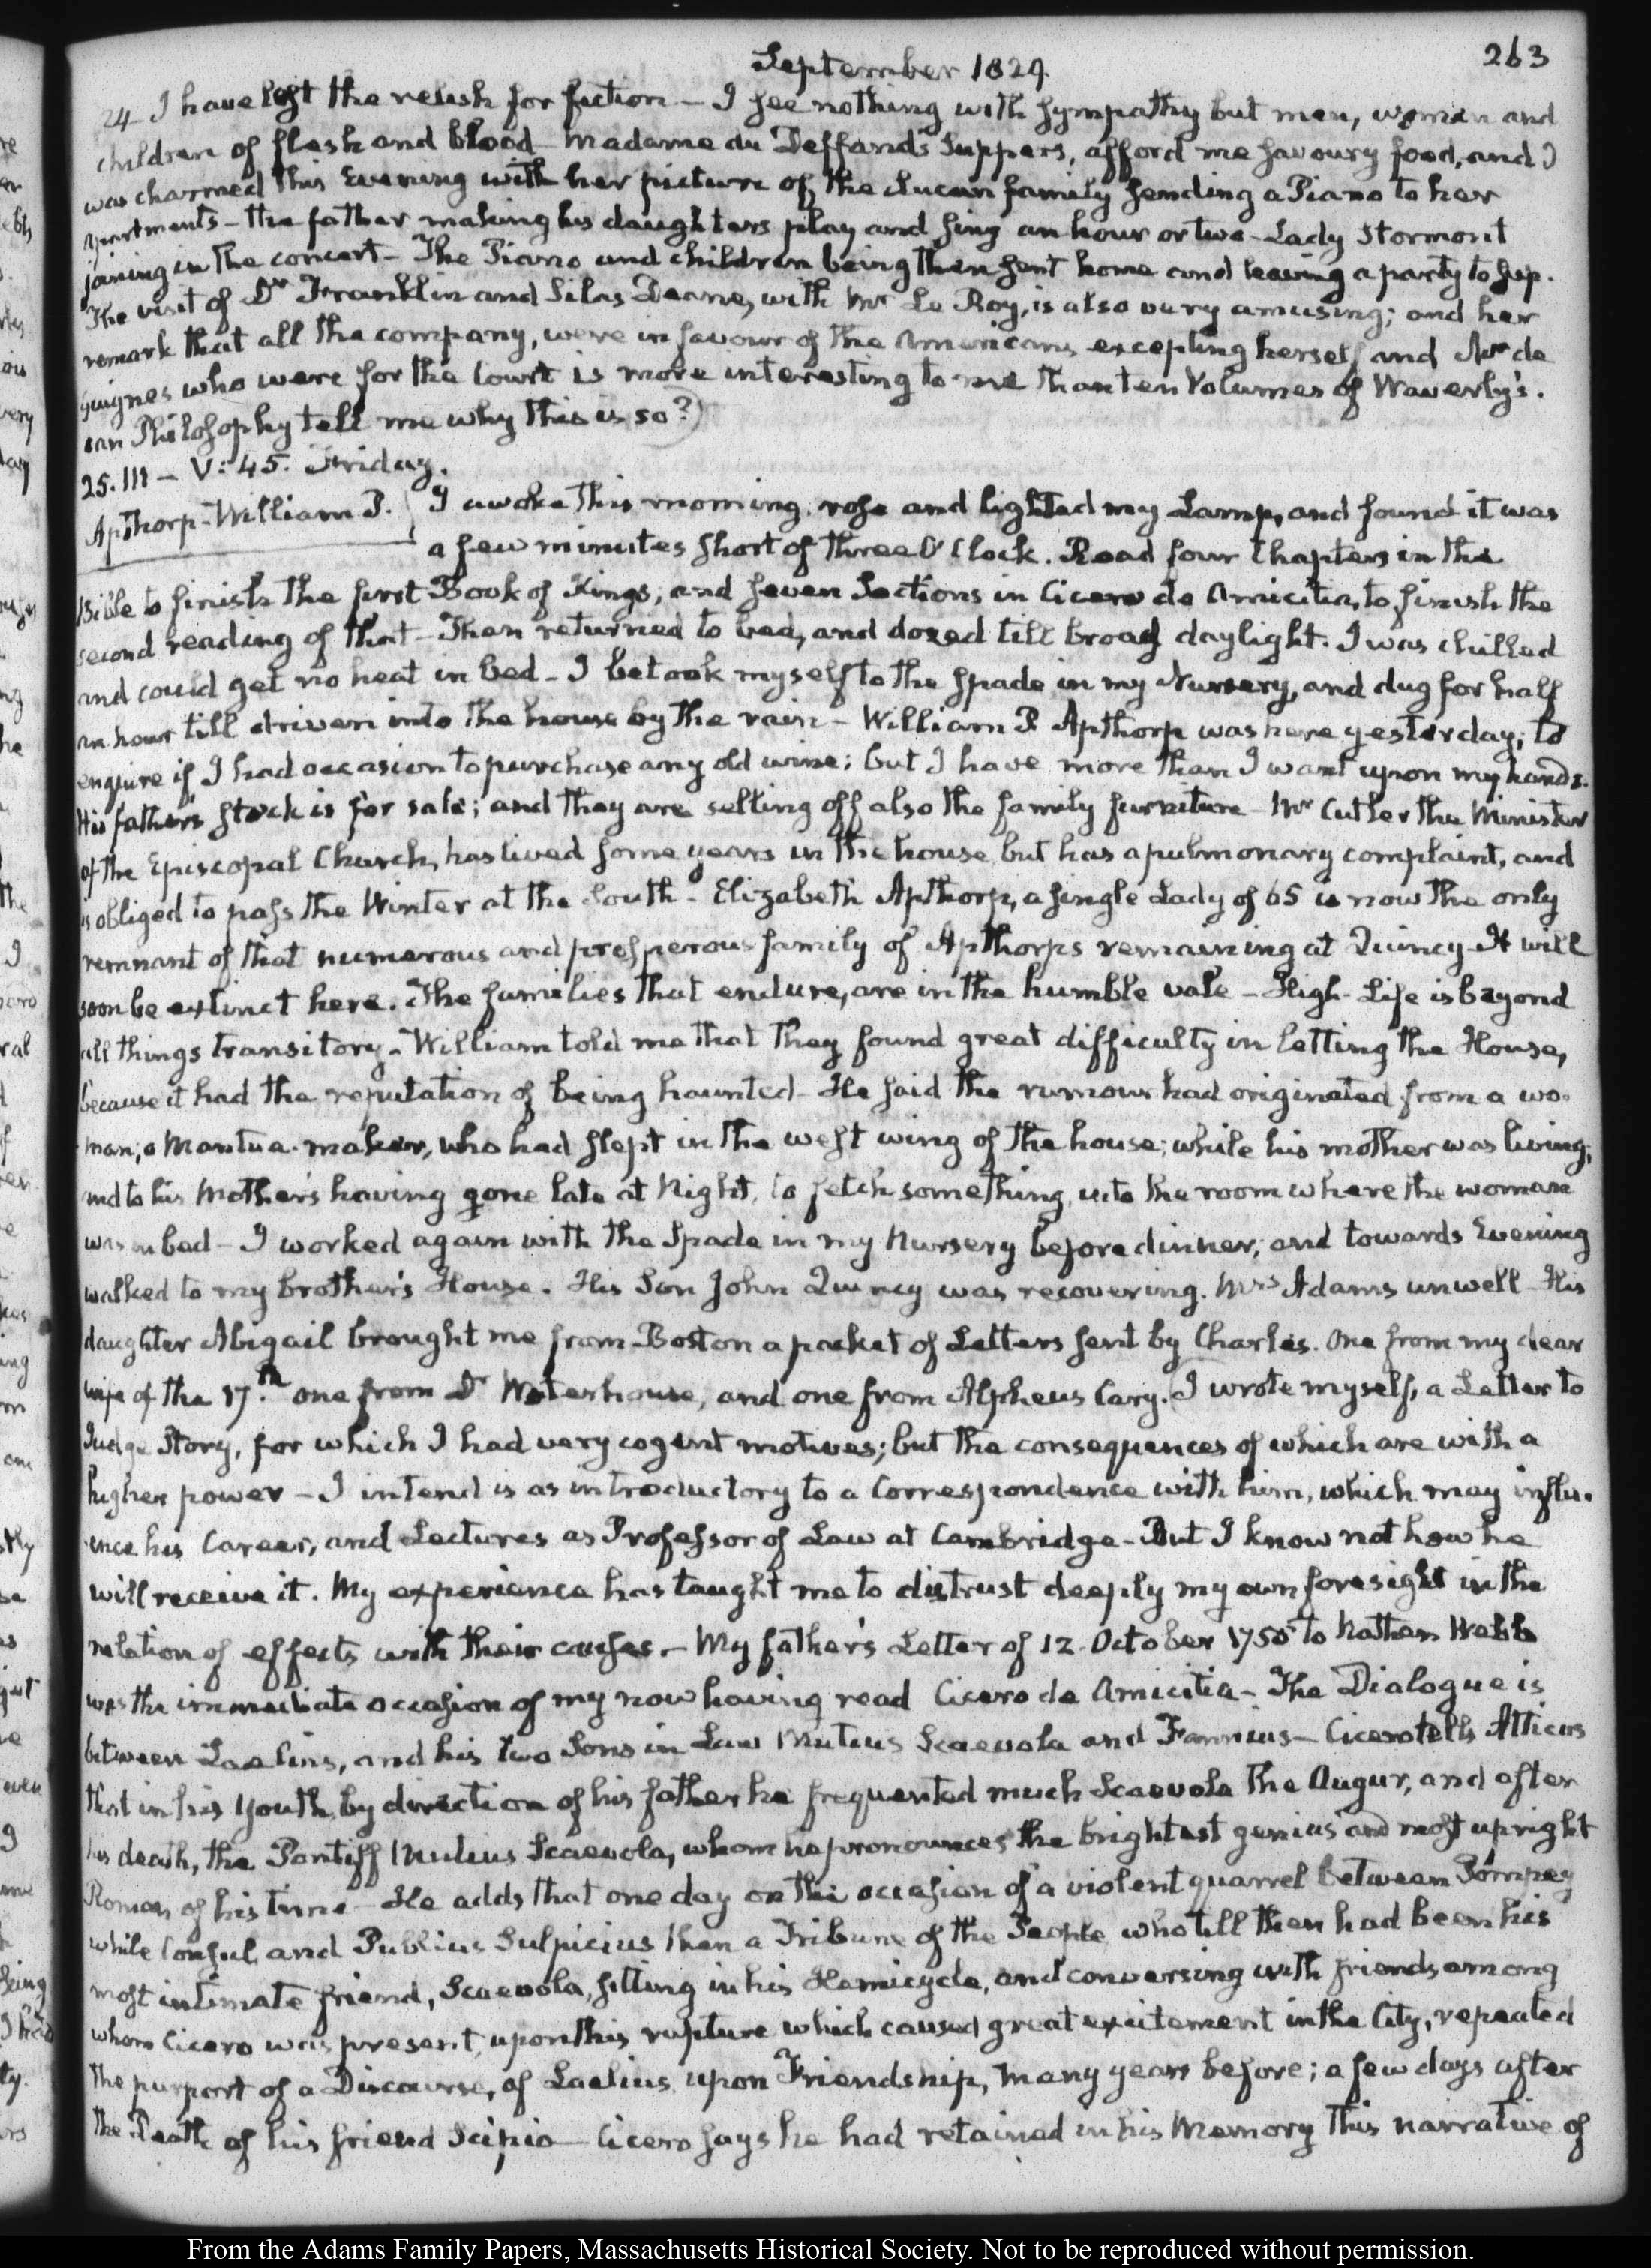 September 1829.
263
24 I have lost the relish for fiction – I see nothing with sympathy but men, women and
children of flesh and blood – Madame du Deffand's Suppers, afford me savoury food, and I
was charmed this Evening with her picture of the Lucan family sending a Piano to her
apartments – the father making his daughters play and sing an hour or two – Lady Stormont
joining in the concert – The Piano and children being then sent home and leaving a party to sup.
The visit of Dr Franklin and Silas Deane, with Mr Le Roy, is also very amusing; and her
remark that all the company, were in favour of the Americans excepting herself and Mr de
Guignes who were for the Court is more interesting to me than ten Volumes of Waverly's.
can Philosophy tell me why this is so?)
25. III – V: 45. Friday.
Apthorp – William P. I awoke this morning, rose and lighted my Lamp, and found it was
a few minutes short of three O'Clock. Read four Chapters in the
Bible to finish the first Book of Kings, and seven Sections in Cicero de Amicitia, to finish the
second reading of that – Then returned to bed, and dozed till broad daylight. I was chilled
and could get no heat in bed – I betook myself to the spade in my Nursery, and dug for half
an hour till driven into the house by the rain – William P Apthorp was here yesterday, to
enquire if I had occasion to purchase any old wine; but I have more than I want upon my hands.
His father's stock is for sale; and they are selling off also the family furniture – Mr Cutler the Minister
of the Episcopal Church, has lived some years in the house, but has a pulmonary complaint, and
is obliged to pass the Winter at the South – Elizabeth Apthorp, a single Lady of 65 is now the only
remnant of that numerous and prosperous family of Apthorps remaining at Quincy – It will
soon be extinct here. The families that endure, are in the humble vale – High-Life is beyond
all things transitory – William told me that they found great difficulty in letting the House,
because it had the reputation of being haunted – He said the rumour had originated from a wo-
-man, a Mantua-maker, who had slept in the west wing of the house; while his mother was living;
and to his Mother's having gone late at Night, to fetch something into the room where the woman
was in bed – I worked again with the Spade in my Nursery before dinner; and towards Evening
walked to my brother's House. His Son John Quincy was recovering. Mrs Adams unwell – His
daughter Abigail brought me from Boston a packet of Letters sent by Charles. One from my dear
wife of the 17.th one from Dr Waterhouse, and one from Alpheus Cary. I wrote myself, a Letter to
Judge Story, for which I had very cogent motives; but the consequences of which are with a
higher power – I intend is as introductory to a Correspondence with him, which may influ-
-ence his Career, and Lectures as Professor of Law at Cambridge – But I know not how he
will receive it. My experience has taught me to distrust deeply my own foresight in the
relation of effects with their causes – My father's Letter of 12 October 1755 to Nathan Webb
was the immediate occasion of my now having read Cicero de Amicitia – The Dialogue is
between Laelius, and his two Sons in Law Mutius Scaevola and Fannius – Cicero tells Atticus
that in his youth, by direction of his father he frequented much Scaevola the Augur, and after
his death, the Pontiff Mutius Scaevola, whom he pronounces the brightest genius and most upright
Roman of his time – He adds that one day on the occasion of a violent quarrel between Pompey
while Consul and Publius Sulpicius then a Tribune of the People who till then had been his
most intimate friend, Scaevola, sitting in his Hemicycle, and conversing with friends among
whom Cicero was present, upon this rupture which caused great excitement in the City, repeated
the purport of a Discourse, of Laelius upon Friendship, many years before; a few days after
the Death of his friend Scipio – Cicero says he had retained in his Memory this narrative of
From the Adams Family Papers, Massachusetts Historical Society. Not to be reproduced without permission.